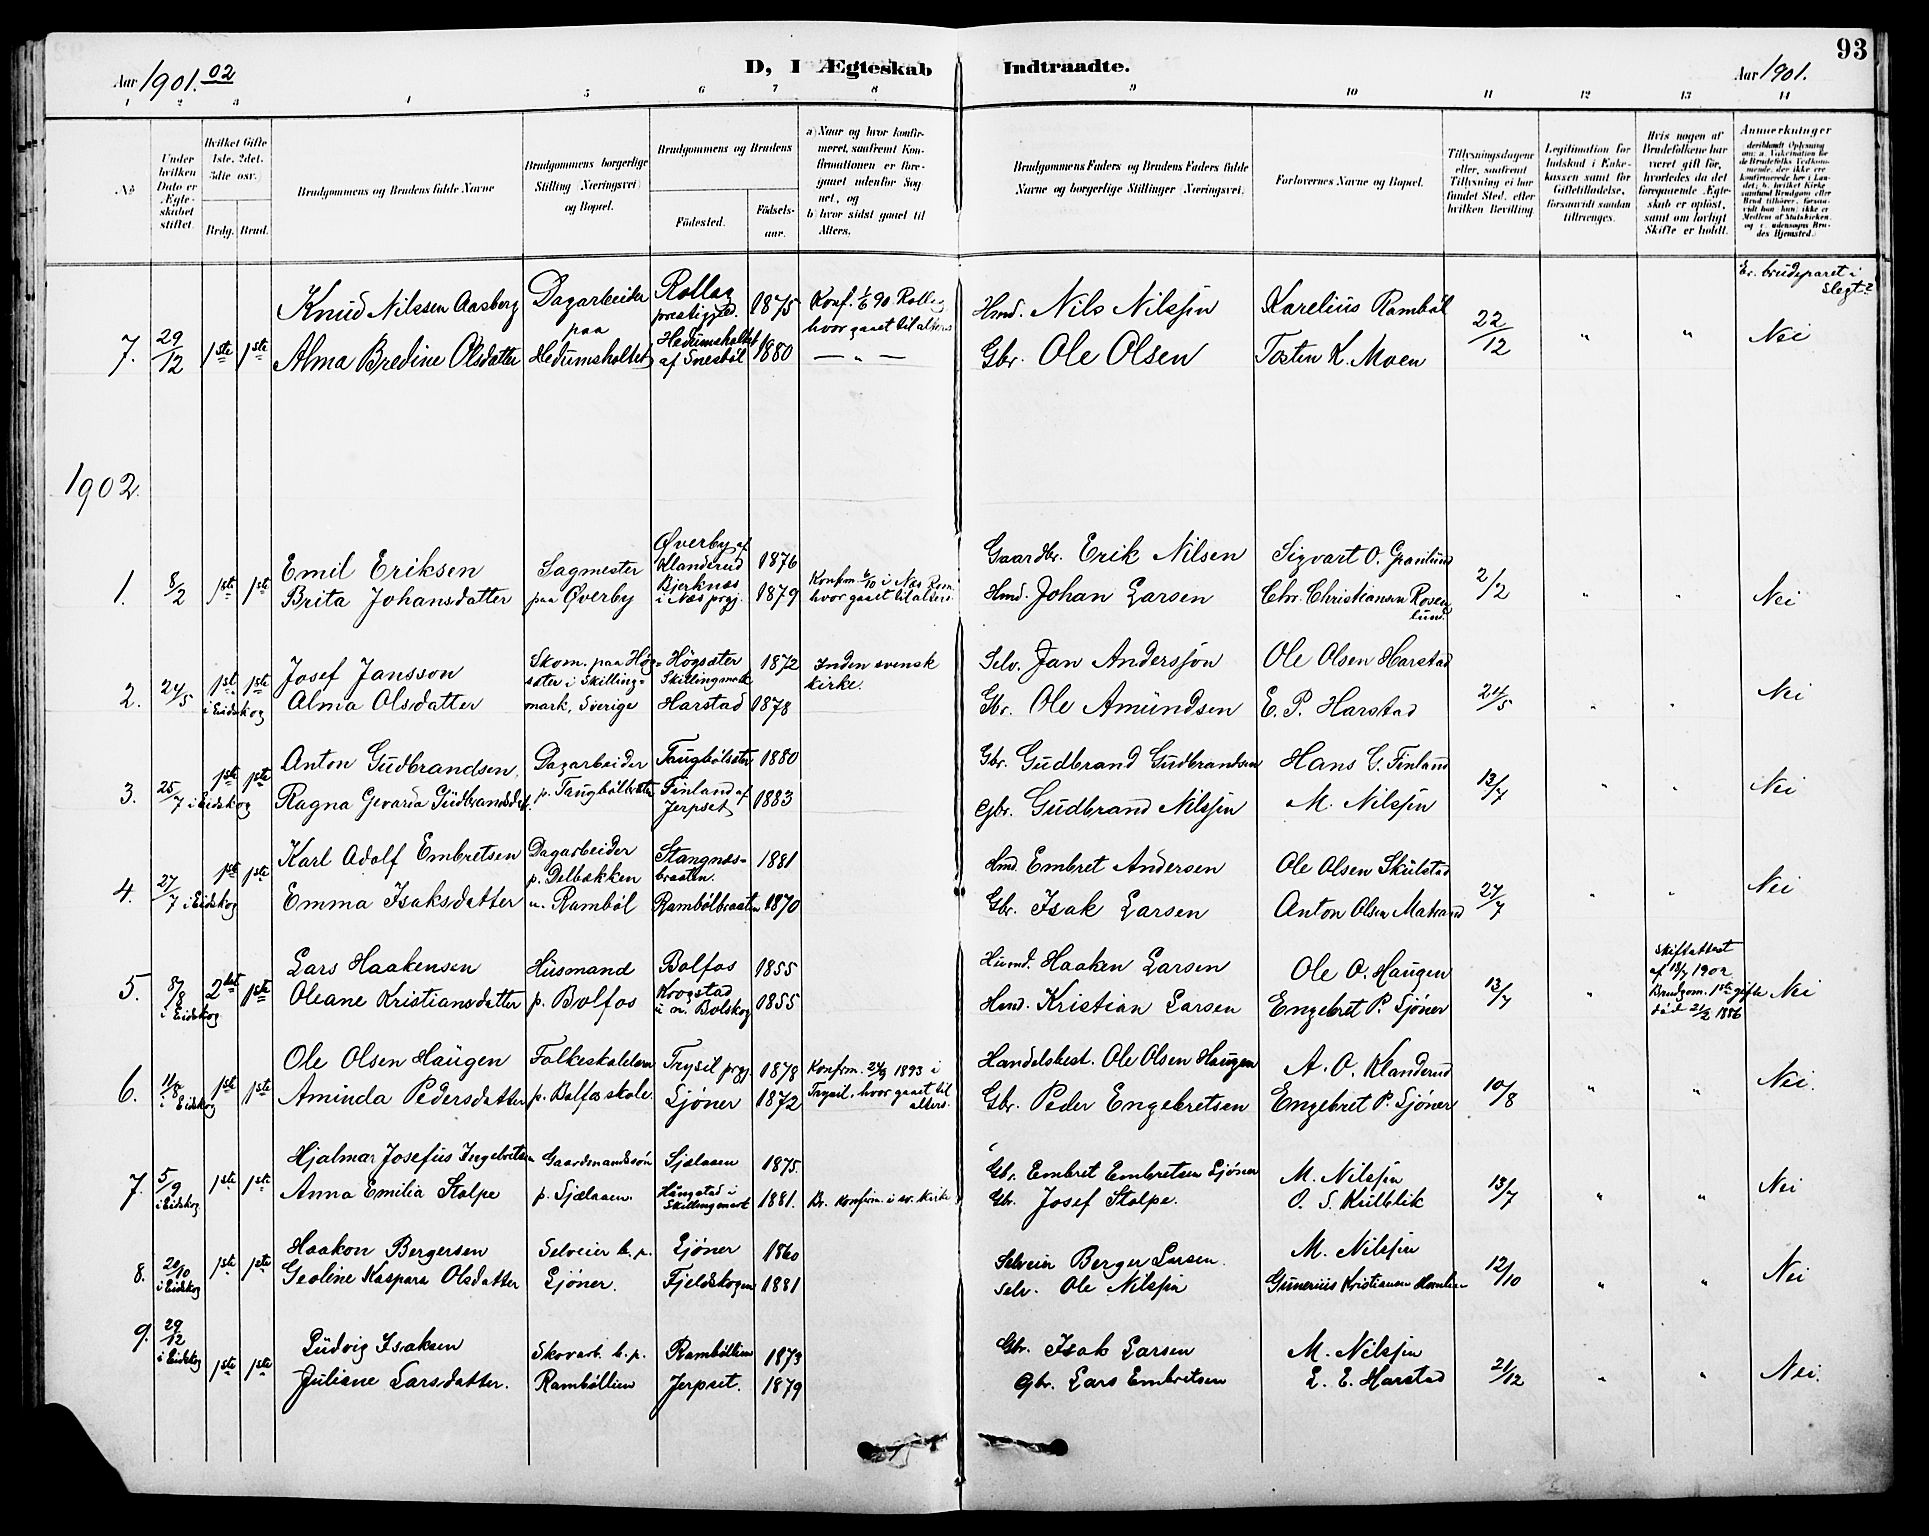 93
Aar 1901. 02
D, I Ægteskab Indtraadte.
Aar 1901.
1 2 3 4 5 6 7 8 9 10 11 12 13 14
No.
Under hvilken Dato er Ægteskabet stiftet.
Hvilket Gifte 1ste, 2det, 3die osv.)
Brdg. Brud.
Brudgommens og Brudens fulde Navne
Brudgommens borgerlige Stilling (Næringsvei) og Bopæl.
Brudgommens og Brudens
Fødested.
Fødselsaar.
a) Naar og hvor konfirmeret, saafremt Konfirmationen er foregaaet udenfor Sognet, og
b) hvor sidst gaaet til Alters.
Brudgommens Faders og Brudens Faders fulde Navne og borgerlige Stillinger (Næringsvei).
Forlovernes Navne og Bopæl.
Tillysningsdagene eller, saafremt Tillysning ei har fundet Sted, efter hvilken Bevilling.
Legitimation for Indskud i Enkekassen samt for Giftetilladelse, forsaavidt saadan tiltrænges.
Hvis nogen af Brudefolkene har været gift før, hvorledes da det foregaaende Ægteskab er opløst, samt om lovligt Skifte er holdt.
Anmerkninger
Er brudeparet i slegt?
Knud Nilssen Aasberg Dagarbeider Rollag prestigjeld. 1875 Konf. 1/6 90. Rollag Hmd. Nils Nilssen Karelius Rambøl
7. 29/12 1ste 1ste Alma Bredine Olsdatter paa Hedumsholtet Hedumsholtet af Snesbøl 1880 hvor gaaet til alters — " — Gbr. Ole Olsen Tosten K. Moen 22/12 " " Nei
1902.
Emil Eriksen Sagmester Øverby af Klanderud 1876 Gaardbr. Erik Nilsen Sigvart O. Granlund
1. 8/2 1ste 1ste Brita Johansdatter paa Øverby Bjerknæs i Næs prgj. 1879 Konfrm. 6/10 i Næs Rom. hvor gaaet til alters. Hmd. Johan Larsen Chr. Christiansen Rosenlund. 2/2 " " Nei
Josef Jansson Skom. paa Høgsæter i Skillingmark, Sverige Högsæter Skillingmark 1872 Inden svensk kirke. Selv. Jan Andersson Ole Olsen Harstad
2. 24/5 i Eidskog 1ste 1ste Alma Olsdatter Harstad 1878 Gbr. Ole Amundsen E. P. Harstad 24/5 " " Nei
Anton Gudbrandsen Dagarbeider Taugbølsæter 1880 Gbr. Gudbrand Gudbrandsen Hans G. Finland
3. 25/7 i Eidskog 1ste 1ste Ragna Gevaria Gudbrandsdat. p. Taugbølsæter Finland af Jerpset 1883 Gbr. Gudbrand Nilssen M. Nilssen 13/7 " " Nei
Karl Adolf Embretsen Dagarbeider p. Delbækken Stangnæsbraaten. 1881 Hmd. Embret Andersen Ole Olsen Skulstad
4. 27/7 i Eidskog 1ste 1ste Emma Isaksdatter u. Rambøl Rambølbraaten 1870 Gbr. Isak Larsen Anton Olsen Matrand 27/7 " " Nei
Lars Haakensen Husmand Bolfos 1855 Husmd. Haaken Larsen Ole O. Haugen
5. 8/8 i Eidskog 2det 1ste Oleane Kristiansdatter p. Bolfos Krogstad u. n. Bolskog 1855 Hmd. Kristian Larsen Engebret P. Sjöner 13/7 " Skifteattest af 18/7 1902 Brudgom. 1ste gifte død 21/2 1886 Nei
Ole Olsen Haugen Folkeskolelærer Trysil prgj. 1878 Konfrm. 24/9 1893 i Handelsbest. Ole Olsen Haugen A. O. Klanderud
6. 11/8 i Eidskog 1ste 1ste Aminda Pedersdatter p. Bolfos skole Sjöner 1872 Trysil, hvor gaaet til alters. Gbr. Peder Engebretsen Engebret P. Sjöner 10/8 " " Nei.
Hjalmar Josefus Ingebretsen Gaardmandssøn Sjølaaen 1875 Gbr. Embret Embretsen Sjöner M. Nilssen
7. 5/9 i Eidskog 1ste 1ste Anna Emilia Stolpe p. Sjølaaen Haugstad i Skillingmark 1881. Br. konfrm. i sv. kirke Gbr. Josef Stolpe. O. S. Kulblik 13/7 " " Nei
Haakon Bergersen Selveier b. p. Sjöner 1860 Selveier Berger Larsen. M. Nilssen
8. 20/10 i Eidskog 1ste 1ste Geoline Kaspara Olsdatter Sjöner. Fjeldskogen 1881 Selv. Ole Nilssen Gunerius Kristiansen 12/10 " " Nei
Ludvig Isaksen Skovarb. b. p. Rambøllien 1873 Gbr. Isak Larsen M. Nilssen
9. 29/12 i Eidskog 1ste 1ste Juliane Larsdatter. Rambøllien Jerpset. 1879 Gbr. Lars Embretsen L. E. Harstad 21/12 " " Nei.